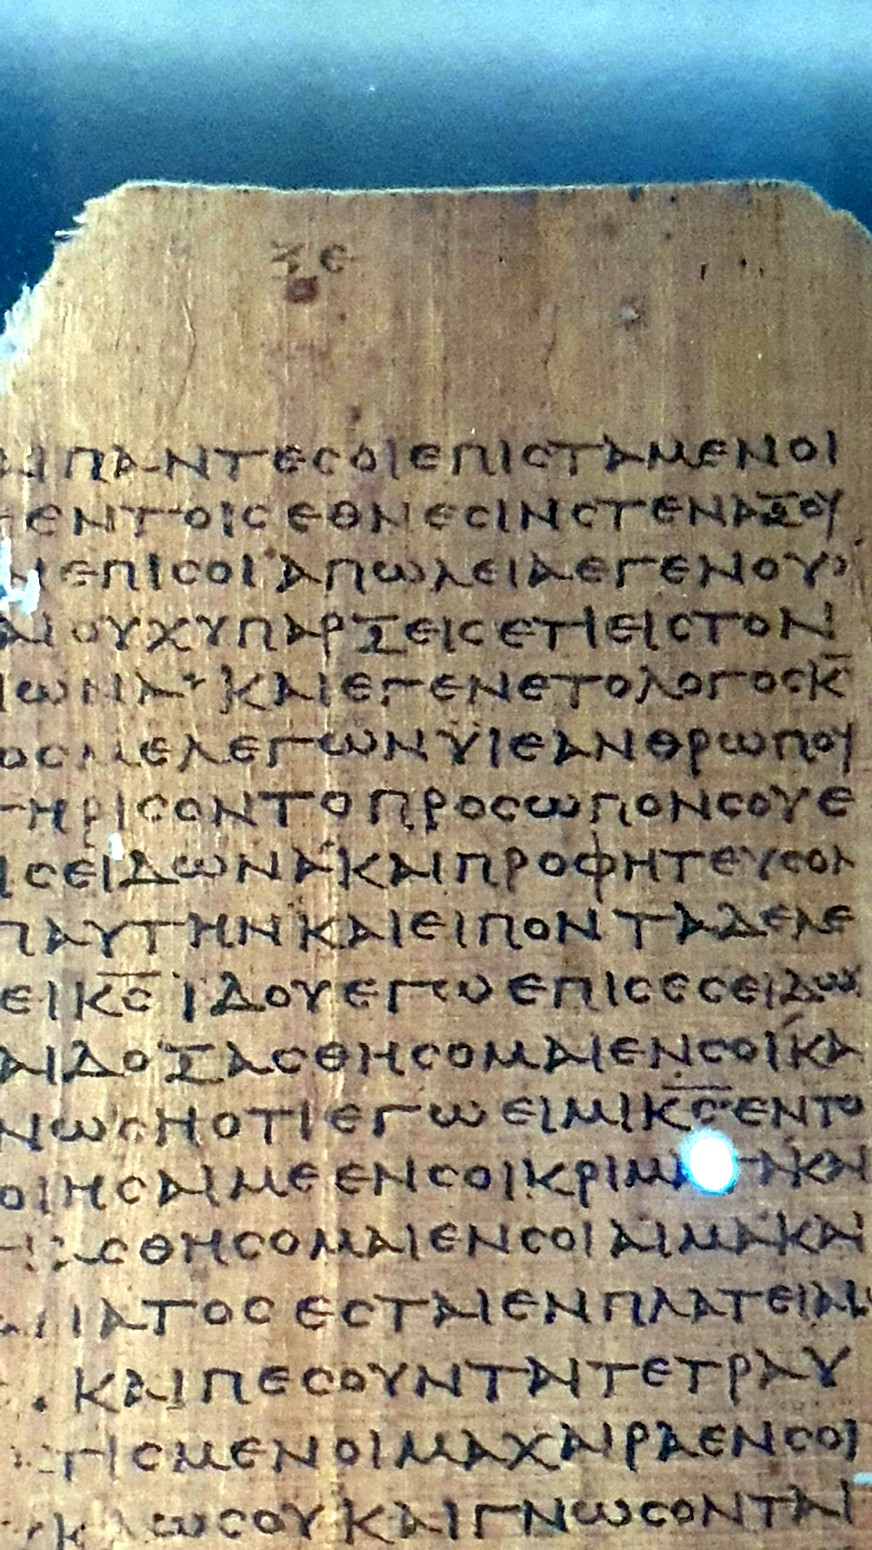 ϞΕ
ΠΑΝΤΕСΟΙΕΠΙСΤΑΜΕΝΟΙ
ΕΝΤΟΙСΕΘΝΕСΙΝСΤΕΝΑΞΟΥ
ΕΠΙСΟΙ·ΑΠωΛΕΙΑΕΓΕΝΟΥ
ΑΙΟΥΧΥΠΑΡΞΕΙСΕΤΙΕΙСΤΟΝ
ΙωΝΑ·ΚΑΙΕΓΕΝΕΤΟΛΟΓΟСΚ̅
ΟСΜΕΛΕΓωΝΫΙΕΑΝΘΡωΠΟΥ
ΤΗΡΙСΟΝΤΟΠΡΟСωΠΟΝСΟΥΕ
ΙСΕΙΔωΝΑ·ΚΑΙΠΡΟΦΗΤΕΥСΟΝ
ΠΑΥΤΗΝΚΑΙΕΙΠΟΝΤΑΔΕΛΕ
ΕΙΚ̅С̅ΙΔΟΥΕΓωΕΠΙСΕСΕΙΔω
ΑΙΔΟΞΑСΘΗСΟΜΑΙΕΝСΟΙΚΑ
ΝωСΗΟΤΙΕΓωΕΙΜΙΚ̅С̅ΕΝΤω
ΟΙΗСΑΙΜΕΕΝСΟΙΚΡΙΜΑ
СΘΗСΟΜΑΙΕΝСΟΙΑΙΜΑΚΑΙ
ΜΑΤΟСΕСΤΑΙΕΝΠΛΑΤΕΙΑΙ
ΚΑΙΠΕСΟΥΝΤΑΙΤΕΤΡΑΥ
ΤΙСΜΕΝΟΙΜΑΧΑΙΡΑΕΝСΟΙ
ΚΛωСΟΥΚΑΙΓΝωСΟΝΤΑΙ